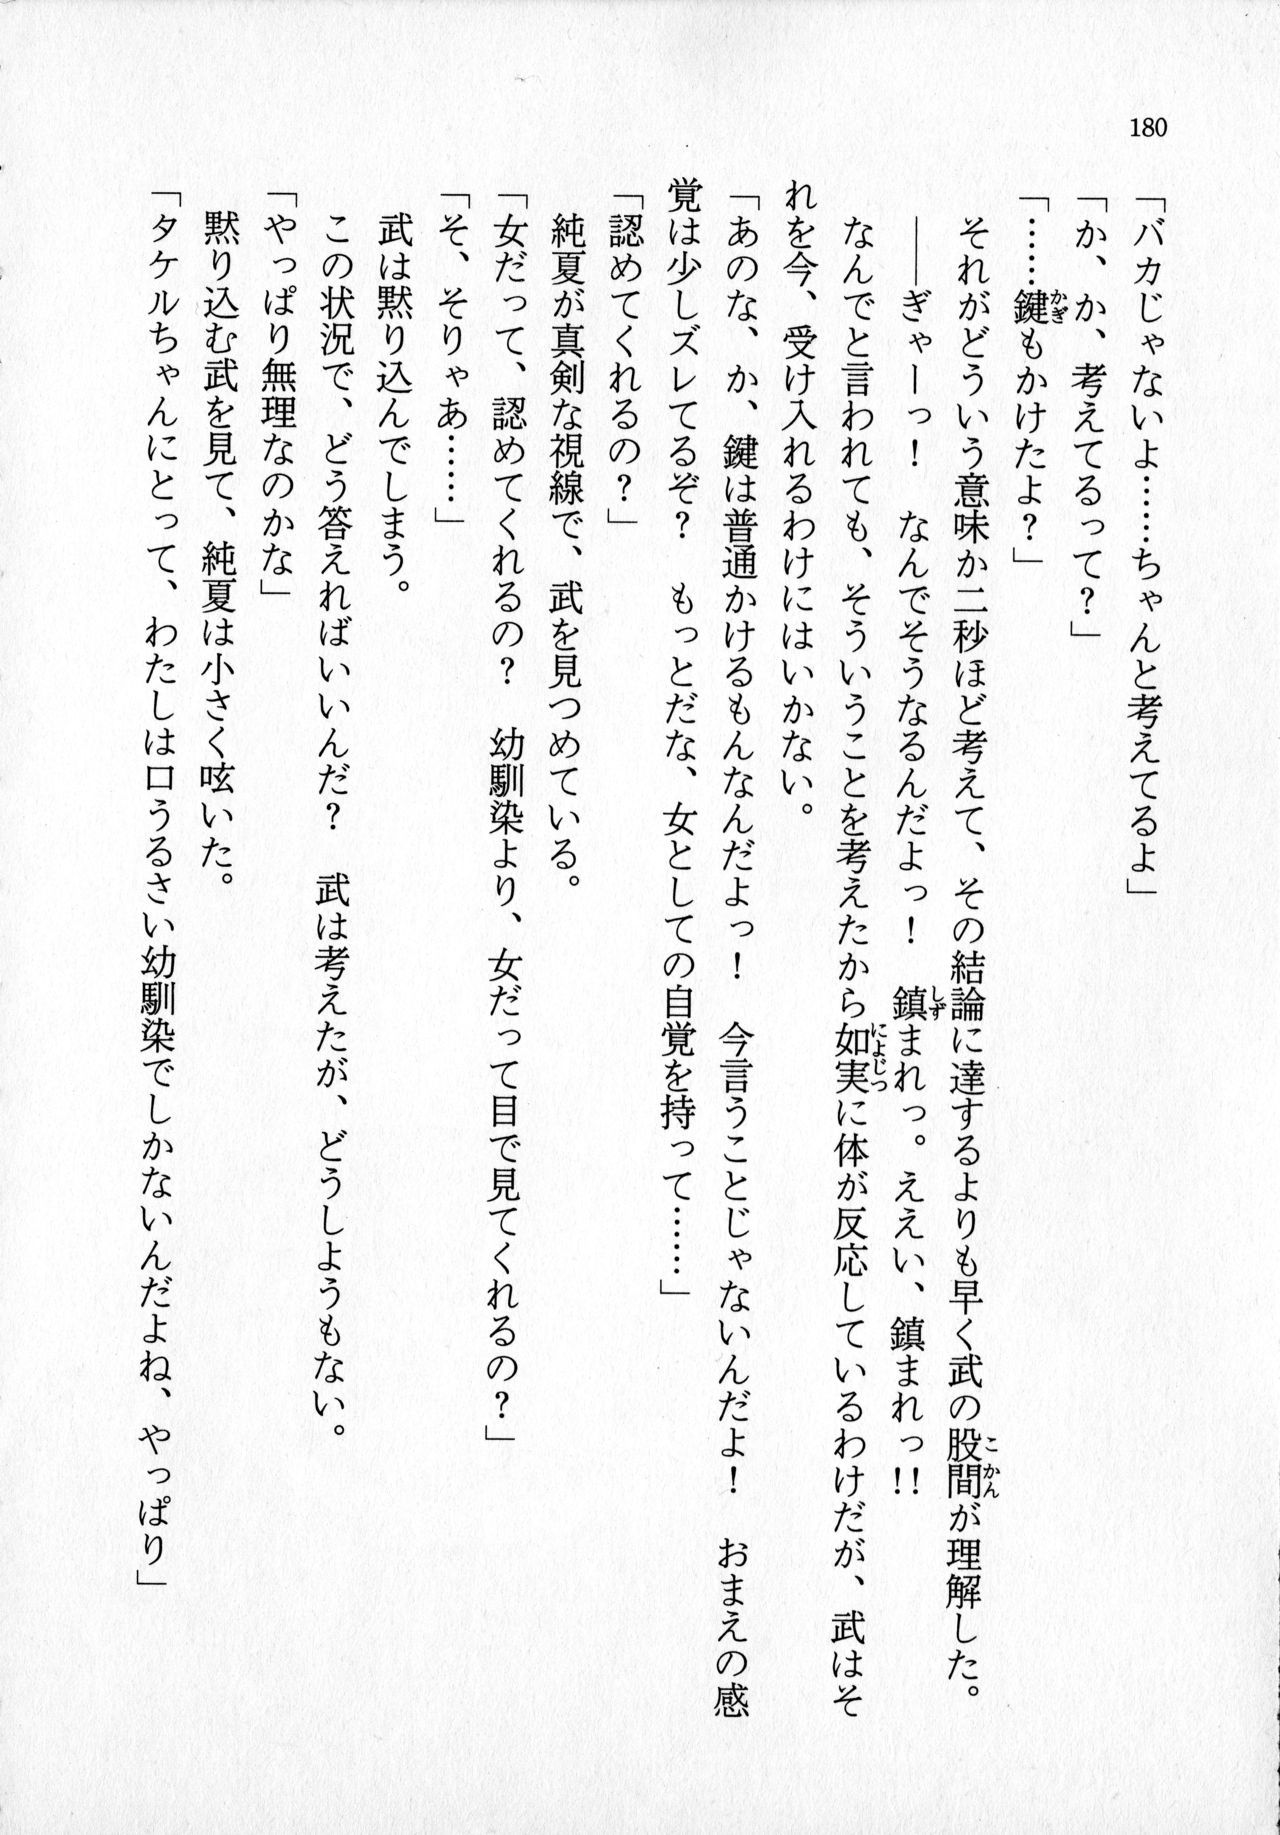 180
「バカじゃないよ……ちゃんと考えてるよ」
「か、か、考えてるって？」
「……鍵もかけたよ？」
　それがどういう意味か二秒ほど考えて、その結論に達するよりも早く武の股間が理解した。
　――ぎゃーっ！　なんでそうなるんだよっ！　鎮まれっ。ええい、鎮まれっ!!
　なんでと言われても、そういうことを考えたから如実に体が反応しているわけだが、武はそ
れを今、受け入れるわけにはいかない。
「あのな、か、鍵は普通かけるもんなんだよっ！　今言うことじゃないんだよ！　おまえの感
覚は少しズレてるぞ？　もっとだな、女としての自覚を持って……」
「認めてくれるの？」
　純夏が真剣な視線で、武を見つめている。
「女だって、認めてくれるの？　幼馴染より、女だって目で見てくれるの？」
「そ、そりゃあ……」
　武は黙り込んでしまう。
　この状況で、どう答えればいいんだ？　武は考えたが、どうしようもない。
「やっぱり無理なのかな」
　黙り込む武を見て、純夏は小さく呟いた。
「タケルちゃんにとって、わたしは口うるさい幼馴染でしかないんだよね、やっぱり」